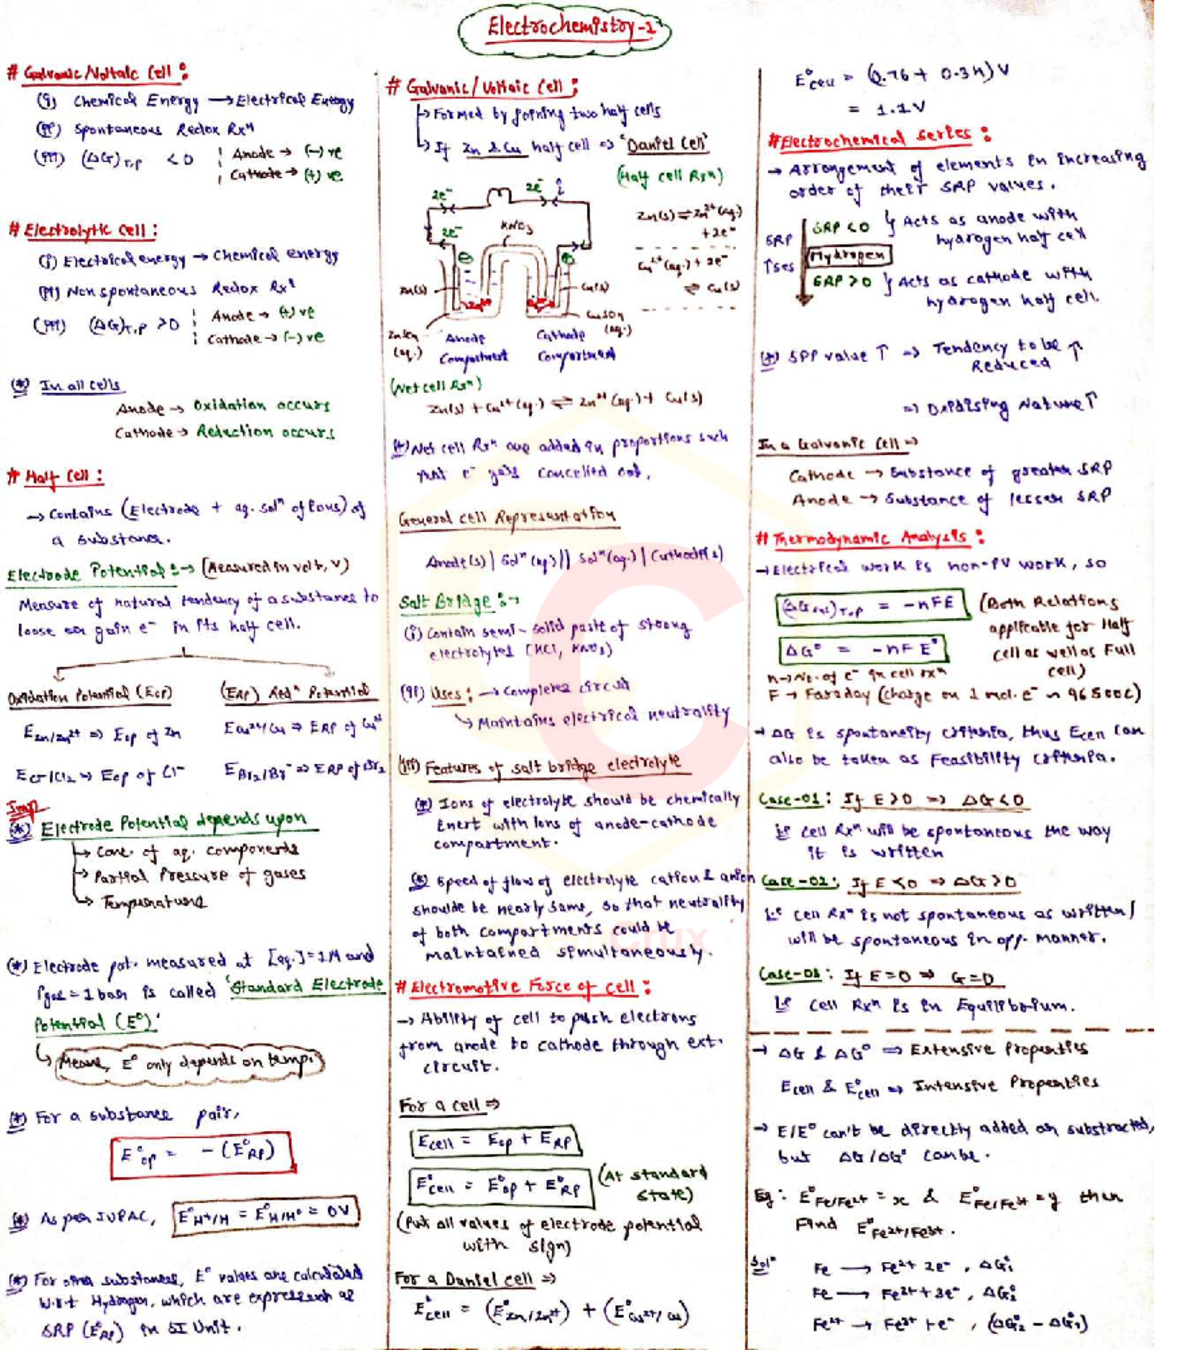 Electrochemistry-1
# Galvanic/Voltaic Cell :
(i) Chemical Energy → Electrical Energy
(ii) Spontaneous Redox Rxⁿ
(iii) (ΔG)T,P < 0
Anode → (-) ve
Cathode → (+) ve
# Electrolytic Cell :
(i) Electrical energy → Chemical energy
(ii) Non spontaneous Redox Rxⁿ
(iii) (ΔG)T,P > 0
Anode → (+) ve
Cathode → (-) ve
(*) In all cells
Anode → Oxidation occurs
Cathode → Reduction occurs
# Half Cell :
→ Contains (Electrode + aq. solⁿ of ions) of
a substance.
Electrode Potential :→ (Measured in volt, V)
Measure of natural tendency of a substance to
loose or gain e⁻ in its half cell.
Oxidation Potential (EOP)
(ERP) Redⁿ Potential
EZn/Zn²⁺ ⇒ EOP of Zn
ECu²⁺/Cu ⇒ ERP of Cu²⁺
ECl⁻/Cl₂ ⇒ EOP of Cl⁻
EBr₂/Br⁻ ⇒ ERP of Br₂
Imp
(*) Electrode Potential depends upon
→ Conc. of aq. components
→ Partial Pressure of gases
→ Temperature
(*) Electrode pot. measured at [aq.]=1M and
Pgas = 1 bar is called 'Standard Electrode
Potential (E°)'
Means, E° only depends on temp.
(*) For a substance pair,
E°OP = - (E°RP)
(*) As per IUPAC, E°H⁺/H = E°H/H⁺ = 0V
(*) For other substances, E° values are calculated
w.r.t Hydrogen, which are expressed as
SRP (E°RP) in SI Unit.
# Galvanic/Voltaic Cell :
→ Formed by joining two half cells
→ If Zn & Cu half cell ⇒ 'Daniel Cell'
(Half cell Rxⁿ)
2e⁻
2e⁻
i
2e⁻
KNO₃
Zn(s) ⇌ Zn²⁺(aq.)
+ 2e⁻
Cu²⁺(aq.) + 2e⁻
⇌ Cu(s)
Zn(s)
Cu(s)
ZnSO₄
(aq.)
CuSO₄
(aq.)
Anode
Compartment
Cathode
Compartment
(Net cell Rxⁿ)
Zn(s) + Cu²⁺(aq.) ⇌ Zn²⁺(aq.) + Cu(s)
(*) Net cell Rxⁿ are added in proportions such
that e⁻ gets cancelled out.
General cell Representation
Anode(s) | Solⁿ(aq.) || Solⁿ(aq.) | Cathode(s)
Salt Bridge :→
(i) Contain semi-solid paste of strong
electrolytes (KCl, KNO₃)
(ii) Uses : → Completes circuit
→ Maintains electrical neutrality
(iii) Features of salt bridge electrolyte
(*) Ions of electrolyte should be chemically
inert with ions of anode-cathode
compartment.
(*) Speed of flow of electrolyte cation & anion
shoulde be nearly same, so that neutrality
of both compartments could be
maintained simultaneously.
# Electromotive Force of Cell :
→ Ability of cell to push electrons
from anode to cathode through ext.
circuit.
For a cell ⇒
Ecell = EOP + ERP
E°cell = E°OP + E°RP (At standard
state)
(Put all values of electrode potential
with sign)
For a Daniel cell ⇒
E°cell = (E°Zn/Zn²⁺) + (E°Cu²⁺/Cu)
E°cell = (0.76 + 0.34) V
= 1.1V
# Electrochemical Series :
→ Arrangement of elements in increasing
order of their SRP values.
SRP
↑ses
SRP < 0 } Acts as anode with
hydrogen half cell
Hydrogen
SRP > 0 } Acts as cathode with
hydrogen half cell.
(*) SRP value ↑ ⇒ Tendency to be ↑
Reduced
⇒ Oxidising Nature ↑
In a Galvanic Cell ⇒
Cathode → Substance of greater SRP
Anode → Substance of lesser SRP
# Thermodynamic Analysis :
→ Electrical work is non-PV work, so
(ΔGrxn)T,P = -nFE
(Both Relations
applicable for Half
cell as well as Full
cell)
ΔG° = -nFE°
n → No. of e⁻ in cell rxⁿ
F → Faraday (charge on 1 mol. e⁻ ~ 96500C)
→ ΔG is spontaneity criteria, thus Ecell can
also be taken as Feasibility criteria.
Case-01 : If E > 0 ⇒ ΔG < 0
↳ cell Rxⁿ will be spontaneous the way
it is written
Case-02 : If E < 0 ⇒ ΔG > 0
↳ Cell Rxⁿ is not spontaneous as written /
will be spontaneous in opp. manner.
Case-03 : If E = 0 ⇒ G = 0
↳ Cell Rxⁿ is in Equilibrium.
→ ΔG & ΔG° ⇒ Extensive Properties
Ecell & E°cell ⇒ Intensive Properties
→ E/E° can't be directly added or substracted,
but ΔG/ΔG° can be.
Eg : E°Fe/Fe²⁺ = x & E°Fe/Fe³⁺ = y then
Find E°Fe²⁺/Fe³⁺.
Solⁿ
Fe → Fe²⁺ + 2e⁻, ΔG°₁
Fe → Fe³⁺ + 3e⁻, ΔG°₂
Fe²⁺ → Fe³⁺ + e⁻, (ΔG°₂ - ΔG°₁)